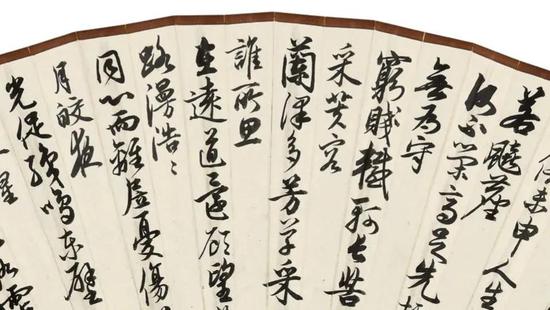 未申人生
若飆塵
何不策高足先
無為守
窮賤轗軻長苦
采芙容
蘭澤多芳草采
誰所思
在遠道還顧望
路漫浩〻
同心而離居憂傷
月皎夜
光促織鳴東壁
星
露